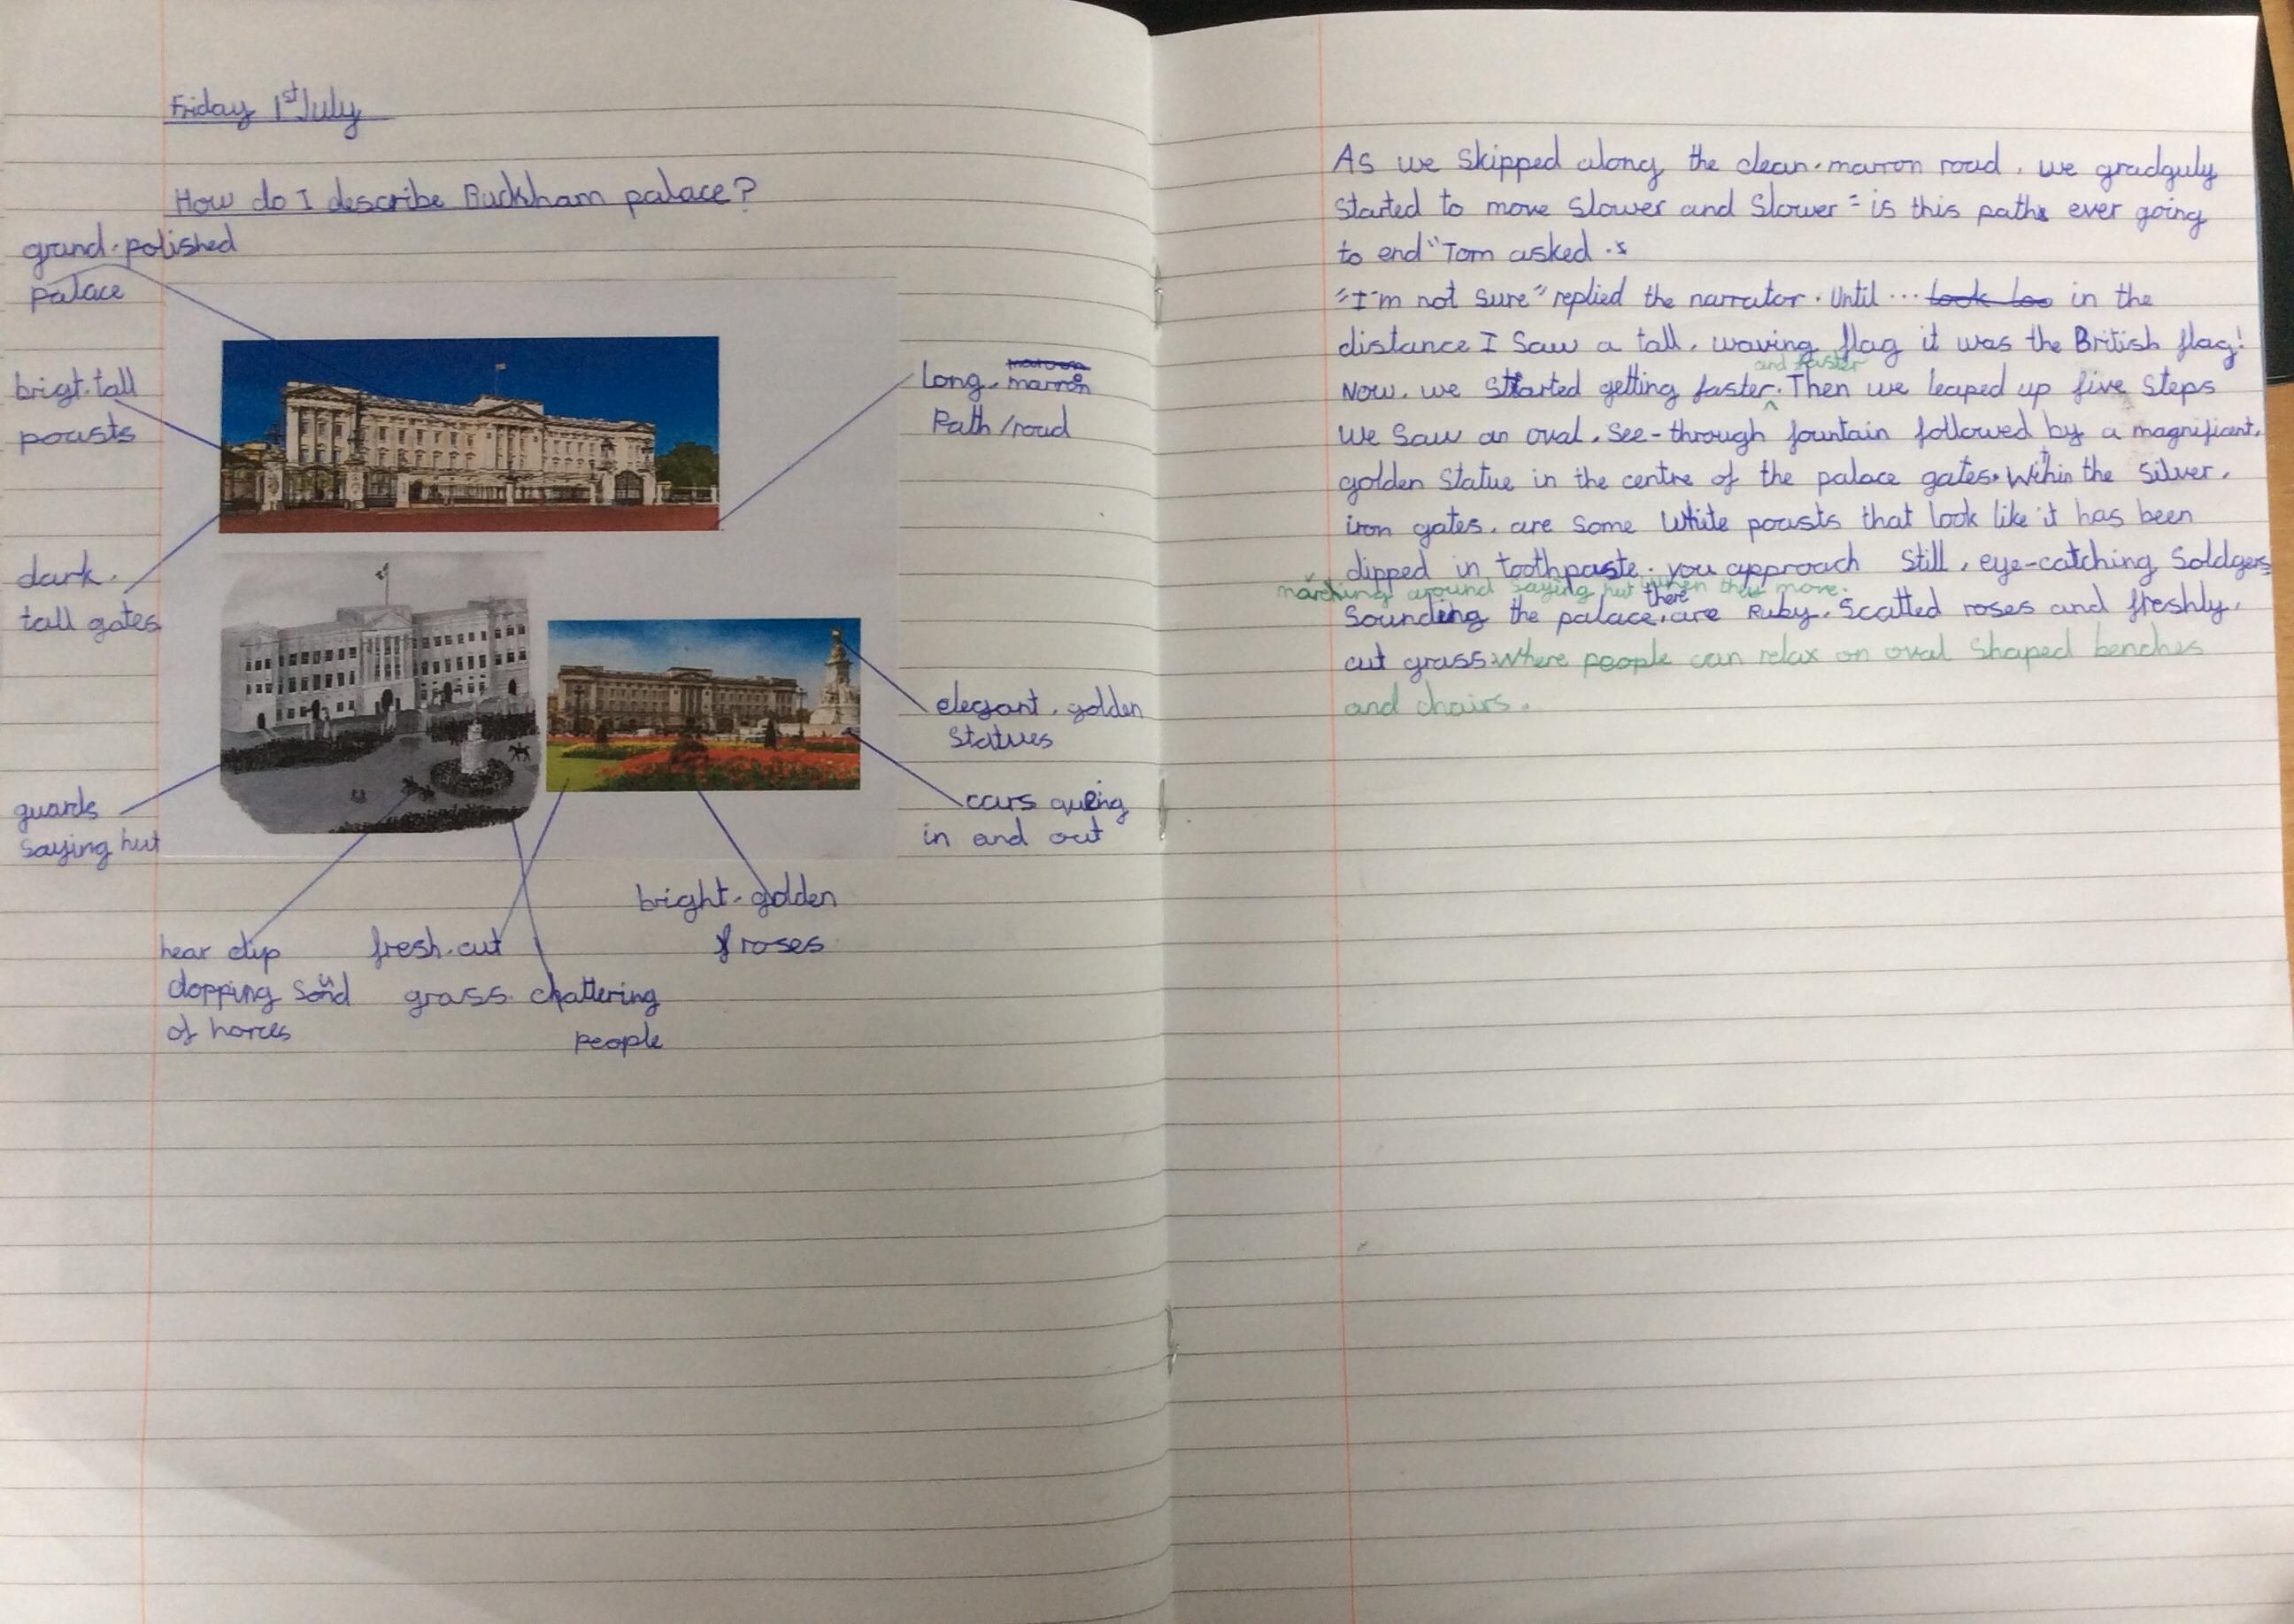 Friday 1st July
How do I describe Buckham palace?
grand, polished
palace
brigt, tall
pousts
dark,
tall gates
guards
saying hut
hear clip
clopping sound
of horces
fresh, cut
grass
chattering
people
bright, golden
roses
long, marron
Path/road
elegant, golden
statues
cars queing
in and out
As we skipped along the clean, marron road, we gradguly
started to move slower and slower "is this path ever going
to end" Tom asked.
"I'm not sure" replied the narrator. Until... in the
distance I saw a tall, waving flag it was the British flag!
and faster
Now, we started getting faster. Then we leaped up five steps
We saw an oval, see-through fountain followed by a magnificant,
golden statue in the centre of the palace gates. Within the silver,
iron gates, are some white pousts that look like it has been
dipped in toothpaste. you approach still, eye-catching Soldgers
marching around saying hut when they move.
Sounding the palace, there are Ruby, Scatted roses and freshly,
cut grass where people can relax on oval shaped benches
and chairs.